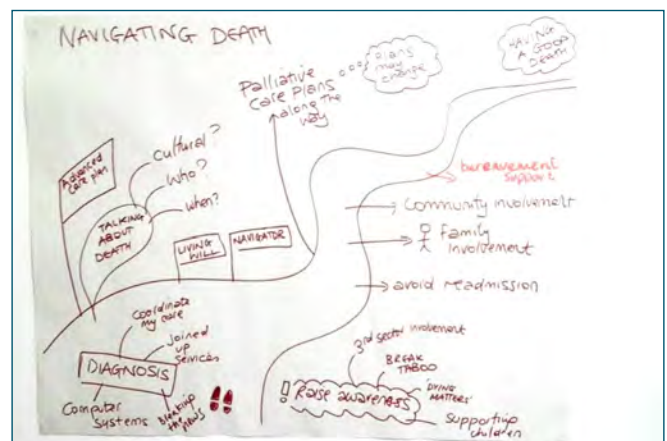 NAVIGATING DEATH
Plans
may
change
HAVING
A GOOD
DEATH
Palliative
Care Plans
along the
way
Advanced
care plan
Cultural?
Who?
when?
TALKING
ABOUT
DEATH
LIVING
WILL
NAVIGATOR
bereavement
support
Community involvement
family
involvement
avoid readmission
Coordinate
my care
Joined
up
services
DIAGNOSIS
Computer
Systems
Breaking
the news
3rd sector involvement
BREAK
TABOO
'DYING
MATTERS'
! Raise awareness
Supporting
children